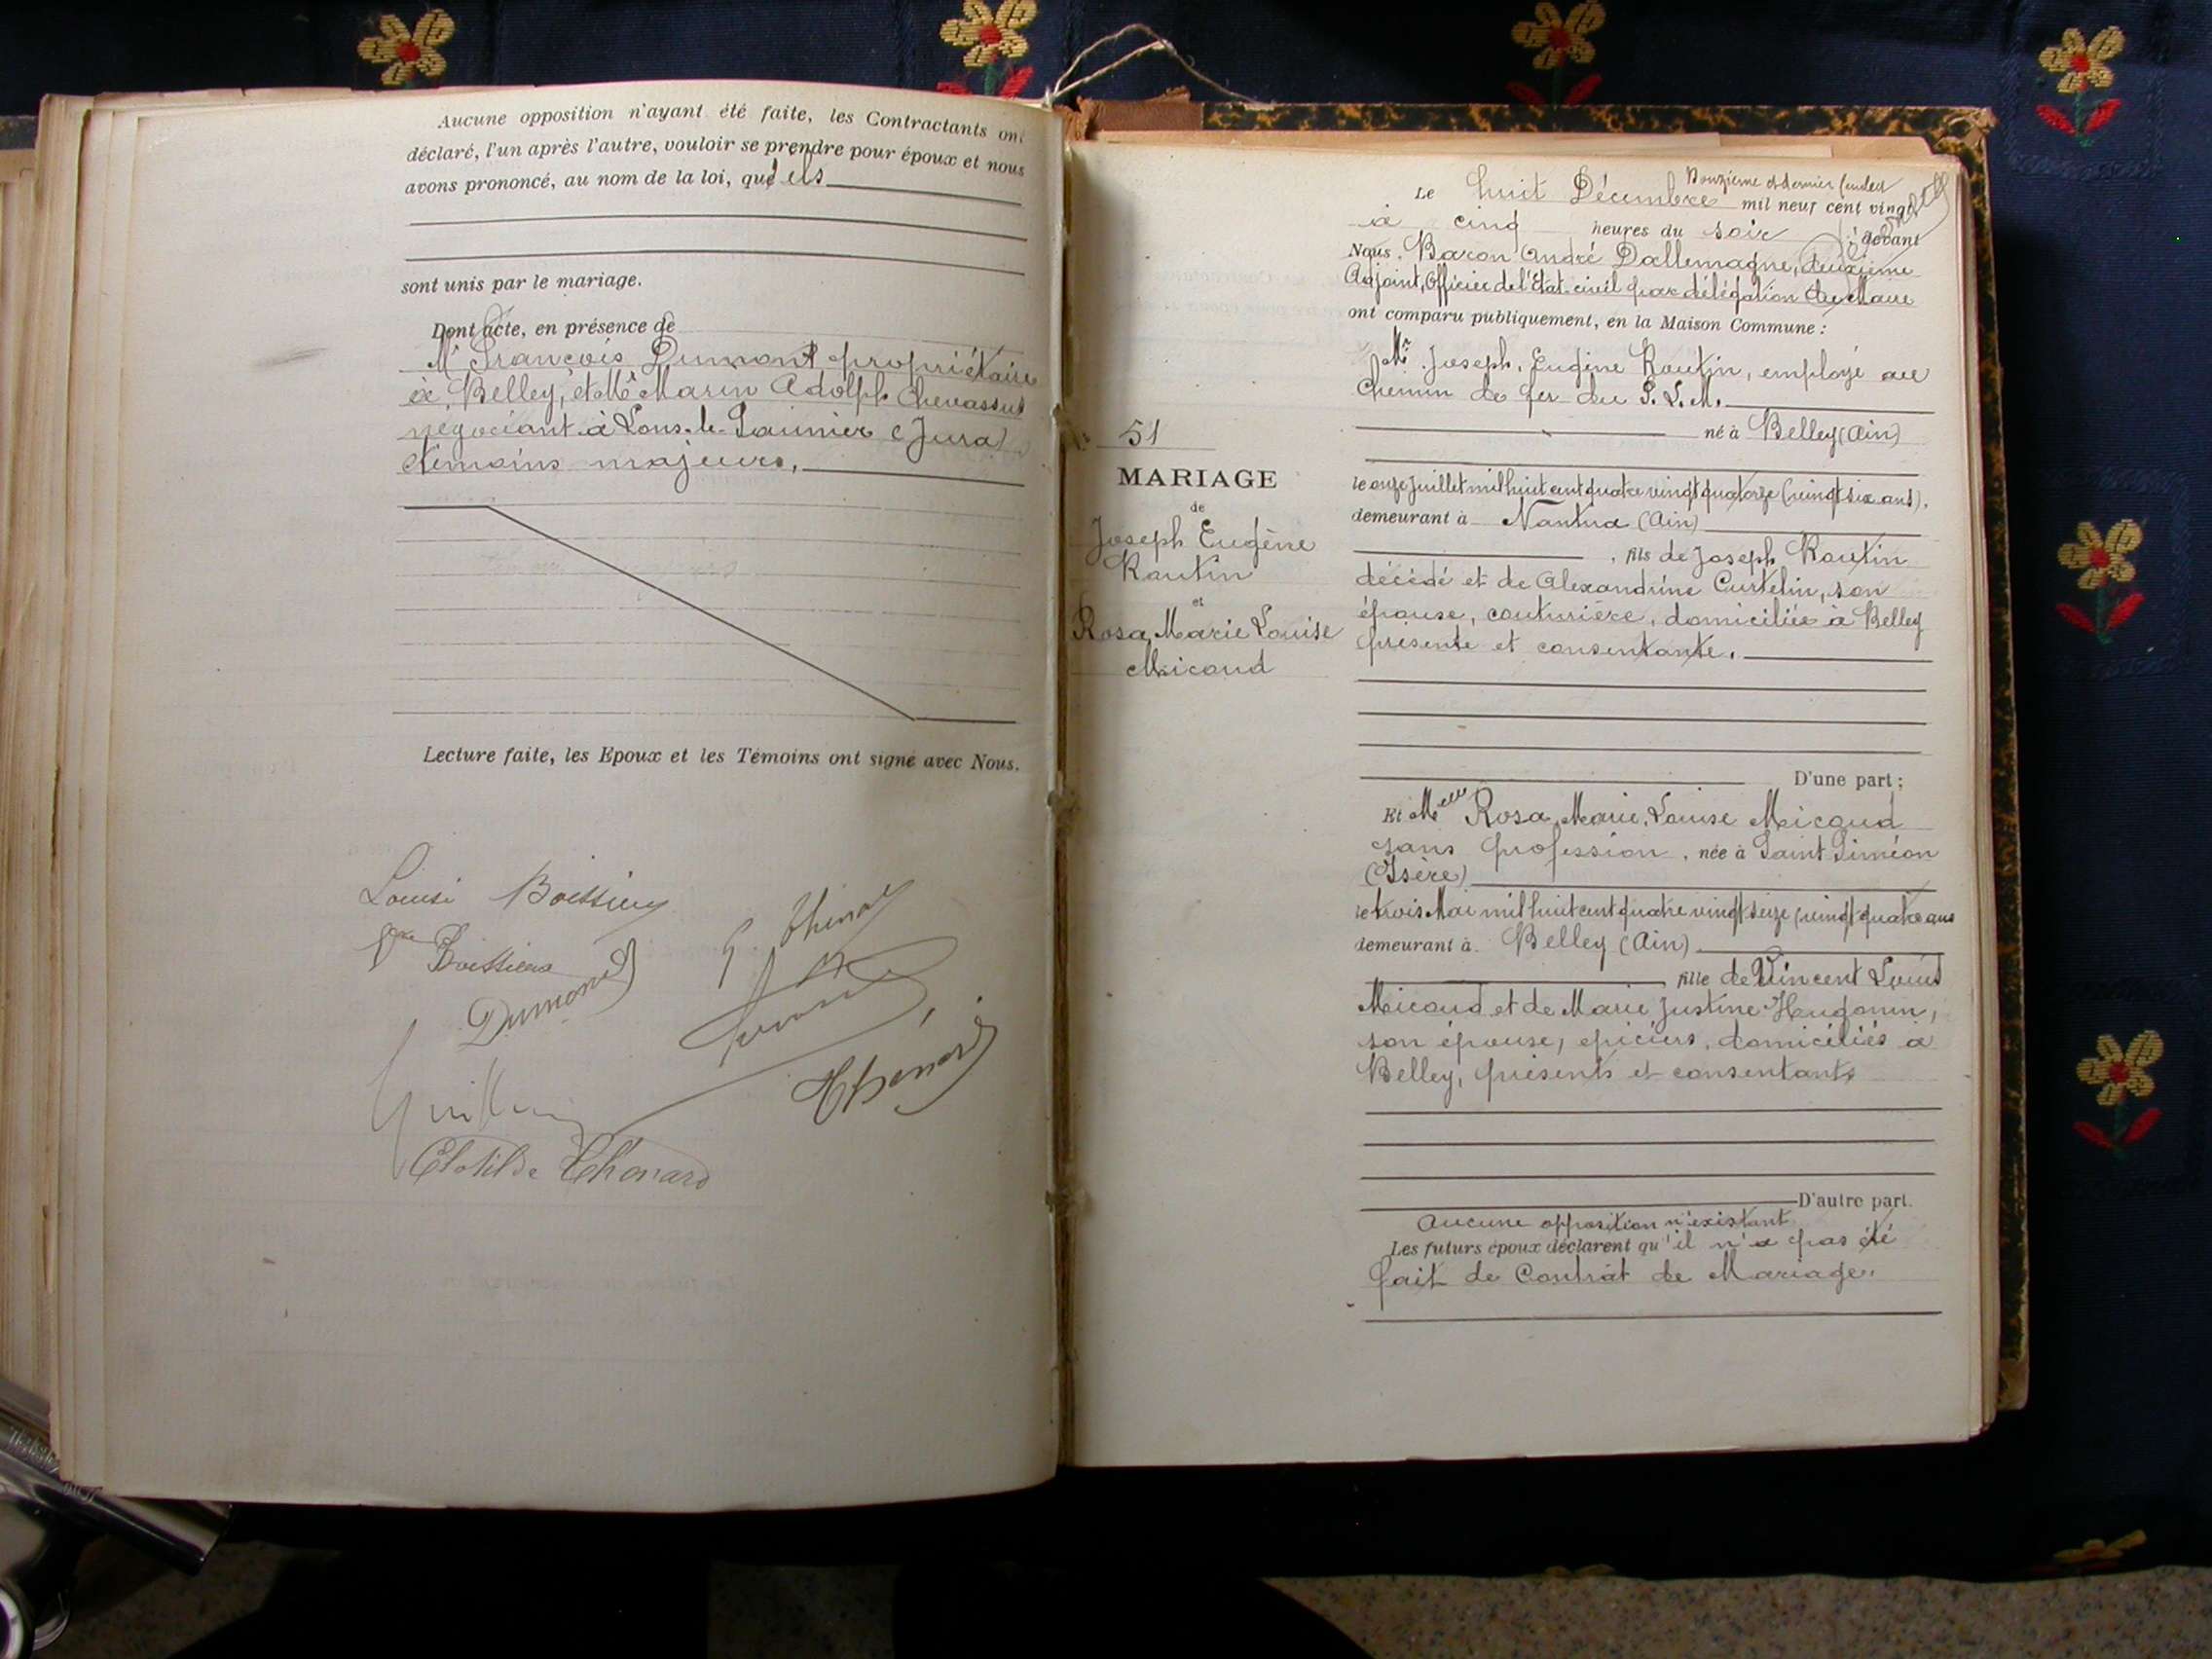 Aucune opposition n'ayant été faite, les Contractants ont
déclaré, l'un après l'autre, vouloir se prendre pour époux et nous
avons prononcé, au nom de la loi, qu'ils
sont unis par le mariage.
Dont acte, en présence de
Mr François Dumont propriétaire
à Belley, et Mr Marin Adolph Chevassus
négociant à Lons-le-Saunier (Jura)
témoins majeurs,
Lecture faite, les Epoux et les Témoins ont signé avec Nous.
Louise
Dumont
Clotilde Thénard
Douzième et dernier feuillet
Le huit Décembre mil neuf cent vingt
à cinq heures du soir devant
Nous, Baron André Dallemagne, deuxième
Adjoint, Officier de l'Etat-civil par délégation du Maire
ont comparu publiquement, en la Maison Commune :
Mr Joseph, Eugène Routin, employé au
Chemin de fer du P. L. M.
né à Belley (Ain)
le onze Juillet mil huit cent quatre vingt quatorze (vingt six ans),
demeurant à Nantua (Ain)
, fils de Joseph Routin
décédé et de Alexandrine Curtelin, son
épouse, couturière, domiciliée à Belley
présente et consentante.
D'une part ;
51
MARIAGE
de
Joseph Eugène
Routin
et
Rosa, Marie Louise
Micoud
Et Melle Rosa, Marie, Louise Micoud
sans profession, née à Saint Siméon
(Isère)
le trois Mai mil huit cent quatre vingt seize (vingt quatre ans
demeurant à Belley (Ain)
fille de Vincent Louis
Micoud et de Marie Justine Hugonin,
son épouse, épiciers, domiciliés à
Belley, présents et consentants
D'autre part.
Aucune opposition n'existant
Les futurs époux déclarent qu'il n'a pas été
fait de Contrat de Mariage.